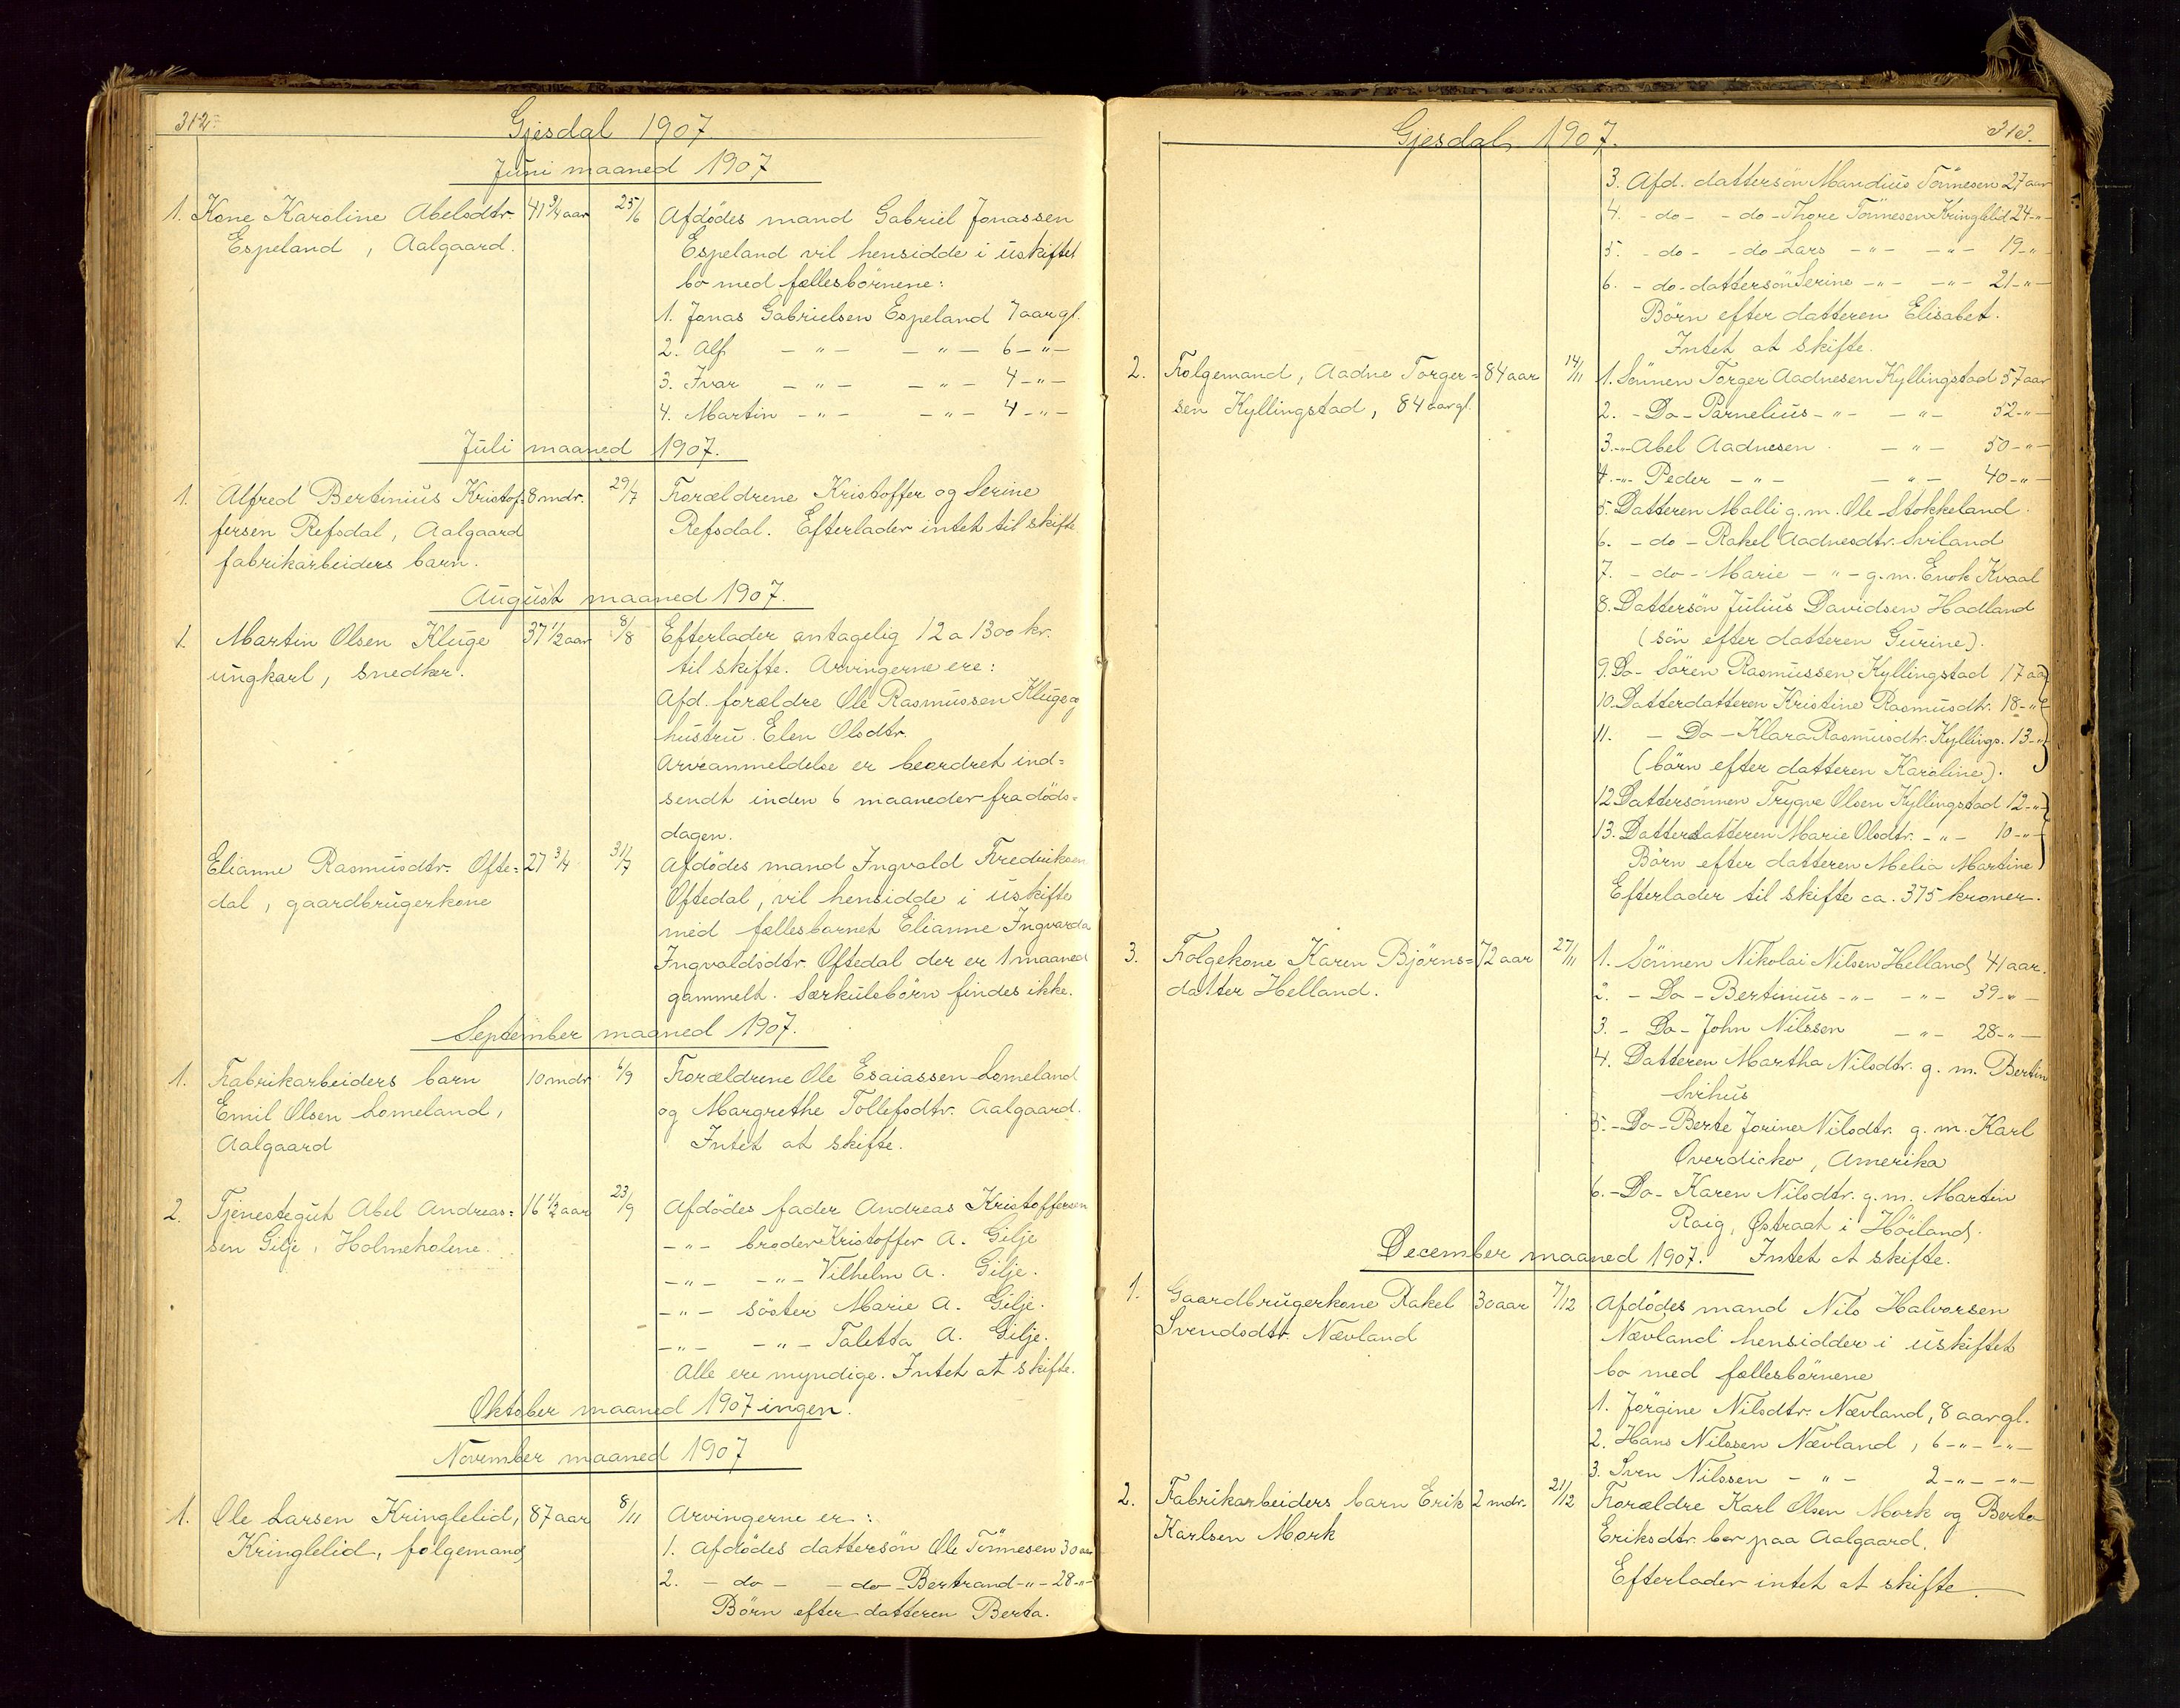 312
Gjesdal 1907.
Juni maaned 1907
1. Kone Karoline Abelsdtr. 41 3/4 aar 25/6 Afdödes mand Gabriel Jonassen
Espeland, Aalgaard. Espeland vil hensidde i uskiftet
bo med fællesbörnene:
1. Jonas Gabrielsen Espeland 7 aar gl.
2. Alf - " - - " - 6 - " -
3. Ivar - " - - " - 4 - " -
4. Martin - " - - " - 4 - " -
Juli maaned 1907.
1. Alfred Bertinius Kristof= 8 mdr. 29/7 Forældrene Kristoffer og Serine
fersen Refsdal, Aalgaard Refsdal. Efterlader intet til skifte
fabrikarbeiders barn.
August maaned 1907.
1. Martin Olsen Kluge 37 1/2 aar 8/8 Efterlader antagelig 12 a 1300 kr.
ungkarl, snedker. til skifte. Arvingerne ere:
Afd. forældre Ole Rasmussen Kluge og
hustru Elen Olsdtr.
Arveanmeldelse er beordret ind=
sendt inden 6 maaneder fra döds=
dagen.
Elianne Rasmusdtr. Ofte= 27 3/4 31/7 Afdödes mand Ingvald Fredriksen
dal, gaardbrugerkone Oftedal, vil hensidde i uskifte
med fællesbarnet Elianne Ingvarda
Ingvaldsdtr. Oftedal der er 1 maaned
gammelt. Særkulsbörn findes ikke.
September maaned 1907.
1. Fabrikarbeiders barn 10 mdr. 6/9 Forældrene Ole Esaiassen Lomeland
Emil Olsen Lomeland, og Margrethe Tollefsdtr. Aalgaard.
Aalgaard Intet at skifte.
2. Tjenestegut Abel Andreas= 16 1/2 aar 23/9 Afdödes fader Andreas Kristoffersen
sen Gilje, Holmeholene. - " - broder Kristoffer A. Gilje
- " - - " - Vilhelm A. Gilje.
- " - söster Marie A. Gilje.
- " - - " - Taletta A. Gilje.
Alle ere myndige. Intet at skifte.
Oktober maaned 1907 ingen.
November maaned 1907
1. Ole Larsen Kringlelid, 87 aar 8/11 Arvingerne er:
Kringlelid, folgemand 1. Afdödes dattersön Ole Tönnesen 30 aar
2. - do - - do - Bertrand - " - 28 - " -
Börn efter datteren Berta.
313.
Gjesdal 1907.
3. Afd. dattersön Mandius Tönnesen 27 aar
4. - do - - do - Thore Tönnesen Kringlelid 24 - " -
5. - do - - do - Lars - " - - " - 19 - " -
6. - do - dattersön Serine - " - - " - 21 - " -
Börn efter datteren Elisabet.
Intet at skifte.
2. Folgemand, Aadne Torger= 84 aar 14/11 1. Sönnen Torger Aadnesen Kyllingstad 57 aar
sen Kyllingstad, 84 aar gl. 2. - Do - Parnelius - " - - " - 52 - " -
3. - " - Abel Aadnesen - " - 50 - " -
4. - " - Peder - " - - " - 40 - " -
5. Datteren Malli g. m. Ole Stokkeland.
6. - do - Rakel Aadnesdtr. Sviland
7. - do - Marie - " - g. m. Enok Kvaal
8. Dattersön Julius Davidsen Hadland
(sön efter datteren Gurine).
9. Do - Sören Rasmussen Kyllingstad 17 aar
10. Datterdatteren Kristine Rasmusdtr. 18 - " -
11. - Do - Klara Rasmusdtr. Kyllings. 13 - " -
(börn efter datteren Karoline).
12. Dattersönnen Trygve Olsen Kyllingstad 12 - " -
13. Datterdatteren Marie Olsdtr. - " - 10 - " -
Börn efter datteren Melia Martine
Efterlader til skifte ca. 375 kroner.
3. Folgekone Karen Björns= 72 aar 27/11 1. Sönnen Nikolai Nilsen Helland 41 aar.
datter Helland. 2. - Do - Bertinius - " - - " - 39 - " -
3. - Do - John Nilssen - " - 28 - " -
4. Datteren Martha Nilsdtr. g. m. Bertin
Svihus
5. - Do - Berte Jorine Nilsdtr. g. m. Karl
Overdicko, Amerika
6. - Do - Karen Nilsdtr. g. m. Martin
Roig, Østraat i Höiland.
December maaned 1907. Intet at skifte.
1. Gaardbrugerkone Rakel 30 aar 7/12 Afdödes mand Nils Halvorsen
Svendsdtr. Nævland Nævland hensidder i uskiftet
bo med fællesbörnene
1. Jörgine Nilsdtr. Nævland, 8 aar gl.
2. Hans Nilssen Nævland, 6 - " - - " -
3. Sven Nilssen - " - 2 - " - - " -
2. Fabrikarbeiders barn Erik 2 mdr. 21/12 Forældre Karl Olsen Mork og Berta
Karlsen Mork Eriksdtr. bor paa Aalgaard.
Efterlader intet at skifte.